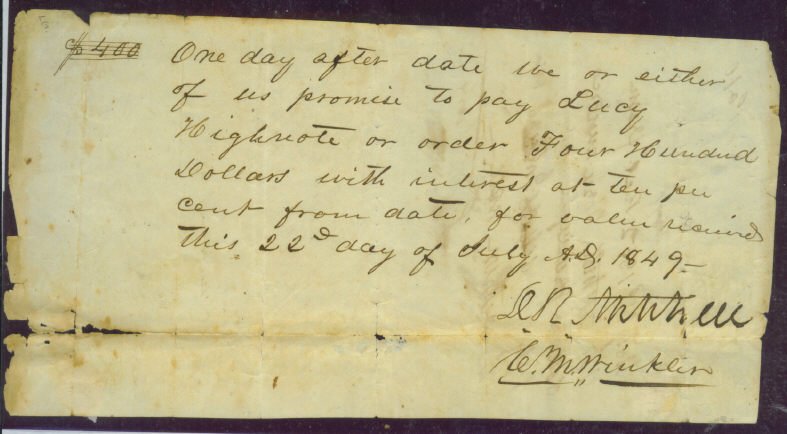 $400
One day after date we or either
of us promise to pay Lucy
Highnote or order Four Hundred
Dollars with interest at ten per
cent from date, for value received
this 22d day of July A.D. 1849–
Mitchell
C. M. Winkler